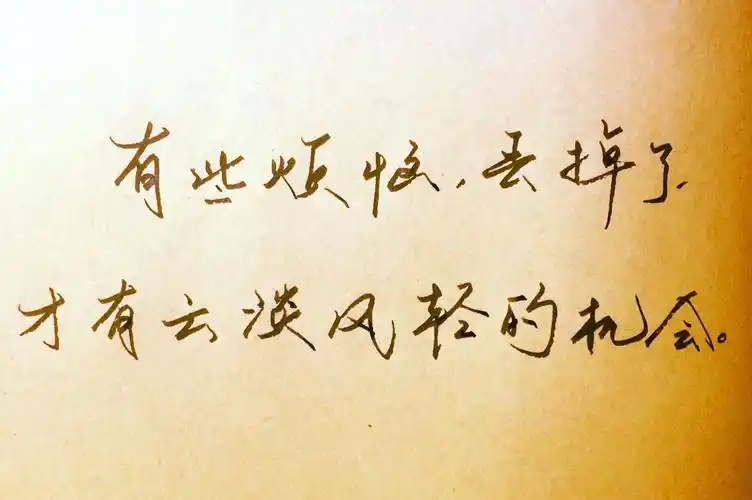 有些烦恼，丢掉了，
才有云淡风轻的机会。